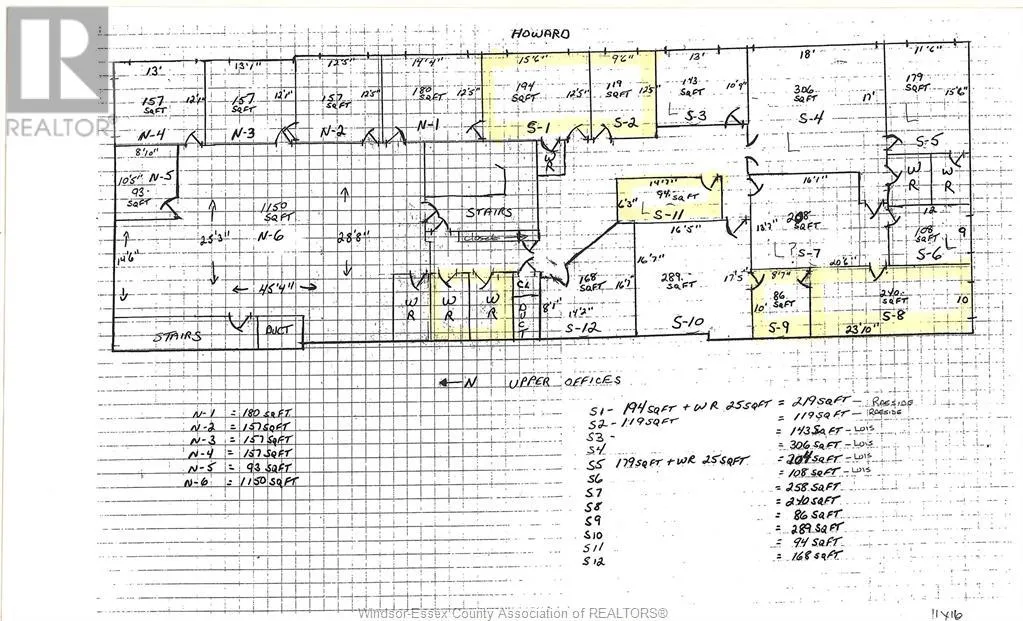 HOWARD
R
REALTOR
13' 13'1" 12'5" 14'4" 15'6" 9'6" 13' 18' 11'6"
157 SQFT 12'1" 157 SQFT 12'1" 157 SQFT 12'5" 180 SQFT 12'5" 194 SQFT 12'5" 119 SQFT 12'5" 143 SQFT 10'9" 306 SQFT 17' 179 SQFT 15'6"
L L L
N-4 N-3 N-2 N-1 S-1 S-2 S-3 S-4 S-5
8'10"
10'5" N-5
93 SQFT
WR WR WR
14'7"
94 SQFT
6'3" L S-11
16'1"
STAIRS
1150 SQFT
25'3" N-6 28'8"
14'6"
45'4"
CLOSET
16'5"
13'7" S-7
L?
20'6"
12
108 SQFT L 9
S-6
16'7"
168 SQFT 16'7" 289 SQFT 17'5"
8'1" 14'2"
S-12 S-10
8'7"
10' 86 SQFT
S-9
240 SQFT 10
S-8
23'10"
WR WR WR CL DUCT
STAIRS DUCT
←N UPPER OFFICES
N-1 = 180 SQFT
N-2 = 157 SQFT
N-3 = 157 SQFT
N-4 = 157 SQFT
N-5 = 93 SQFT
N-6 = 1150 SQFT
S1- 194 SQFT + WR 25 SQFT = 219 SQFT -
S2 - 119 SQFT = 119 SQFT -
S3 - = 143 SQFT - LOIS
S4 = 306 SQFT - LOIS
S5 179 SQFT + WR 25 SQFT = 204 SQFT - LOIS
S6 = 108 SQFT - LOIS
S7 = 258 SQFT
S8 = 240 SQFT
S9 = 86 SQFT
S10 = 289 SQFT
S11 = 94 SQFT
S12 = 168 SQFT
Windsor-Essex County Association of REALTORS®
11X16